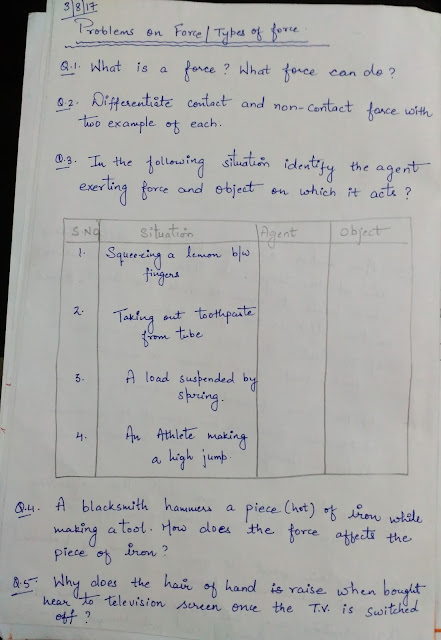 3/8/17
Problems on Force/Types of force.
Q.1. What is a force? What force can do?
Q.2. Differentiate contact and non-contact force with
two example of each.
Q.3. In the following situation identify the agent
exerting force and object on which it acts?
S.No Situation Agent Object
1. Squeezing a lemon b/w
fingers
2. Taking out toothpaste
from tube
3. A load suspended by
spring.
4. An Athlete making
a high jump.
Q.4. A blacksmith hammers a piece (hot) of iron while
making a tool. How does the force affects the
piece of iron?
Q.5 Why does the hair of hand is raise when bought
near to television screen once the T.V. is switched
off?